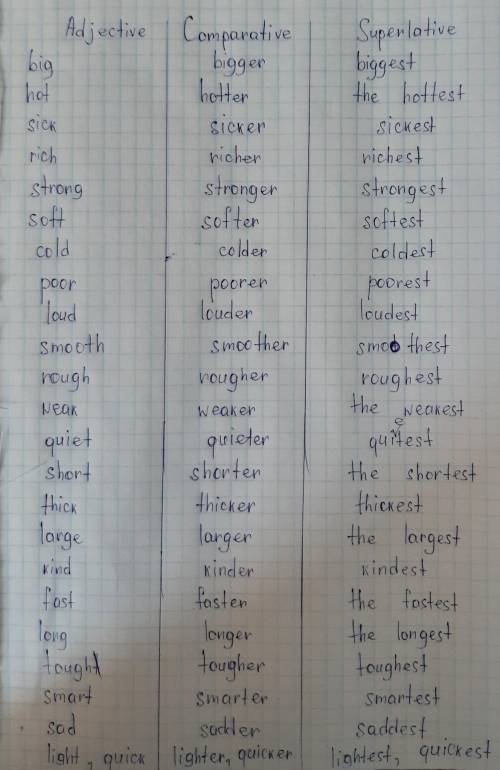 Adjective Comparative Superlative
big bigger biggest
hot hotter the hottest
sick sicker sickest
rich richer richest
strong stronger strongest
soft softer softest
cold colder coldest
poor poorer poorest
loud louder loudest
smooth smoother smoothest
rough rougher roughest
weak weaker the weakest
quiet quieter quitest
short shorter the shortest
thick thicker thickest
large larger the largest
kind kinder kindest
fast faster the fastest
long longer the longest
tough tougher toughest
smart smarter smartest
sad sadder saddest
light, quick lighter, quicker lightest, quickest